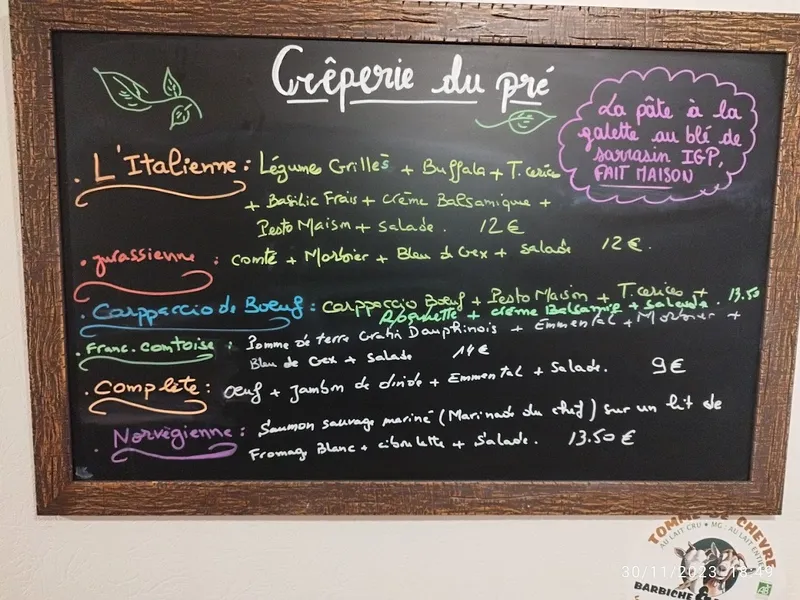 Crêperie du pré
La pâte à la
galette au blé de
sarrasin IGP,
FAIT MAISON
. L'Italienne : Légumes Grillés + Buffala + T. cerises
+ Basilic Frais + crème Balsamique +
Pesto Maison + salade. 12 €
. jurassienne : comté + Morbier + Bleu de Gex + salade 12 €.
. Carppaccio de Boeuf : carppaccio Boeuf + Pesto Maison + T. cerises + 13.50
Roquette + crème Balsamiq + salade.
. Franc. Comtoise : Pomme de terre Gratin Dauphinois + Emmental + Morbier +
Bleu de Gex + salade 14 €
. Complète : oeuf + jambon de dinde + Emmental + salade. 9 €
. Norvègienne : Saumon sauvage mariné (Marinade du chef) sur un lit de
Fromag Blanc + ciboulette + salade. 13.50 €
TOMME DE CHEVRE
AU LAIT CRU • MG : AU LAIT ENTIER
BARBICHE
30/11/2023 18:49